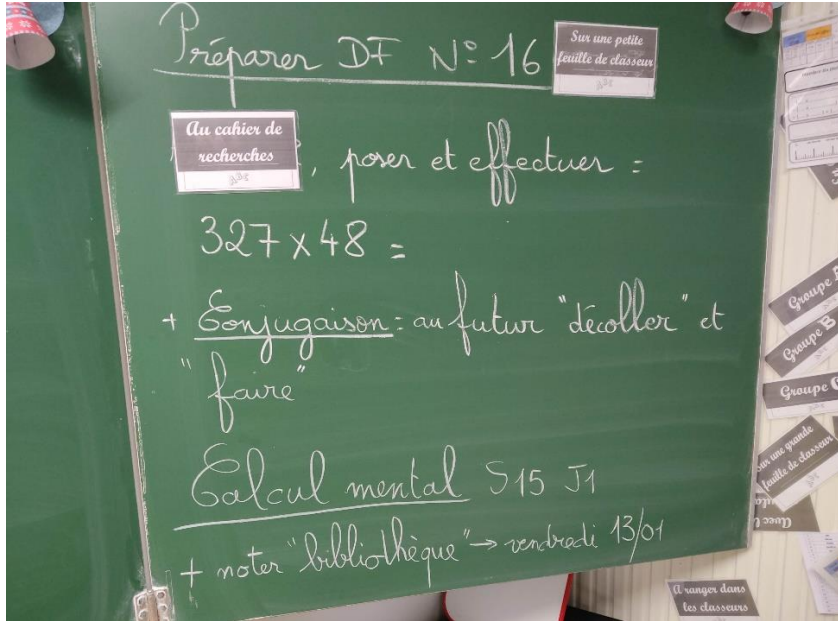 Préparer DF N° 16
Sur une petite
feuille de classeur
Au cahier de
recherches
, poser et effectuer =
327 x 48 =
+ Conjugaison = au futur "décoller" et
"faire"
Calcul mental S15 J1
+ noter "bibliothèque" → vendredi 13/01
Groupe B
Groupe
Sur une grande
feuille de classeur
Avec l
A ranger dans
les classeurs